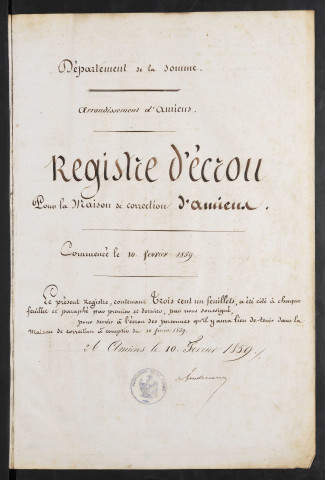 Département de la Somme.
Arrondissement d'Amiens.
Registre d'écrou
Pour la Maison de correction d'Amiens.
Commencé le 10 février 1859.
Le présent Registre, contenant Trois cent un feuillets, a été coté à chaque
feuillet et paraphé par premier et dernier, par nous soussigné,
pour servir à l'écrou des personnes qu'il y aura lieu de tenir dans la
Maison de correction à compter du 10 février 1859.
Amiens le 10 Février 1859